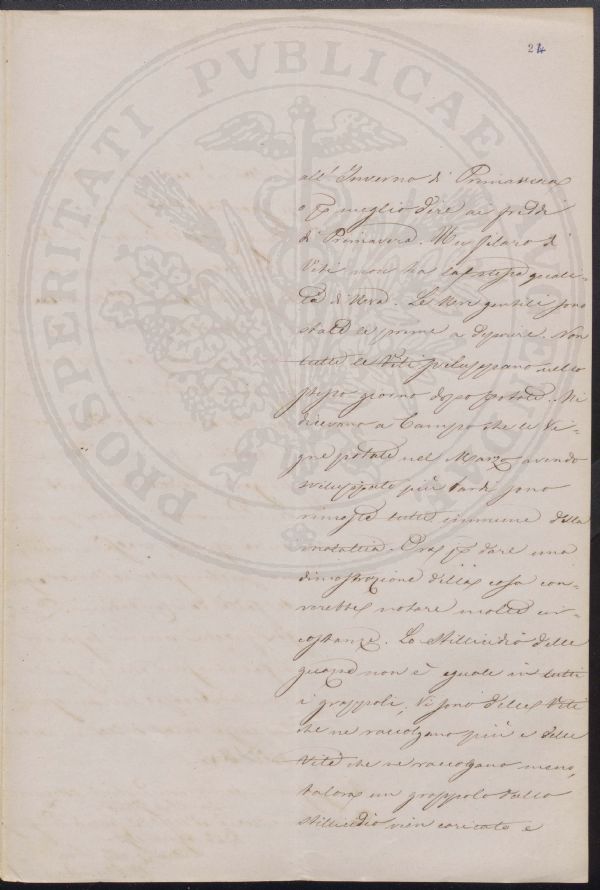 24
PROSPERITATI PVBLICAE AVGENDAE
all'Inverno di Primavera
o p meglio dire ai freddi
di Primavera. Un filaro di
Viti non ha la stessa quali-
tà d'Uva. Le Uve gentili sono
state le prime a deperire. Non
tutte le Viti sviluppano nello
stesso giorno dopo potate. Mi
dicevano a Campo che le Vi-
gne potate nel Marzo avendo
sviluppate più tardi sono
rimaste tutte immune dalla
malattia. Ora p dare una
dimostrazione della cosa con-
verebbe notare molte cir-
costanze. Lo Stillicidio delle
guazze non è eguale in tutti
i grappoli, Vi sono delle Viti
che ne raccolgano più e delle
Vite che ne raccolgano meno,
talora un grappolo dallo
stillicidio vien caricato e